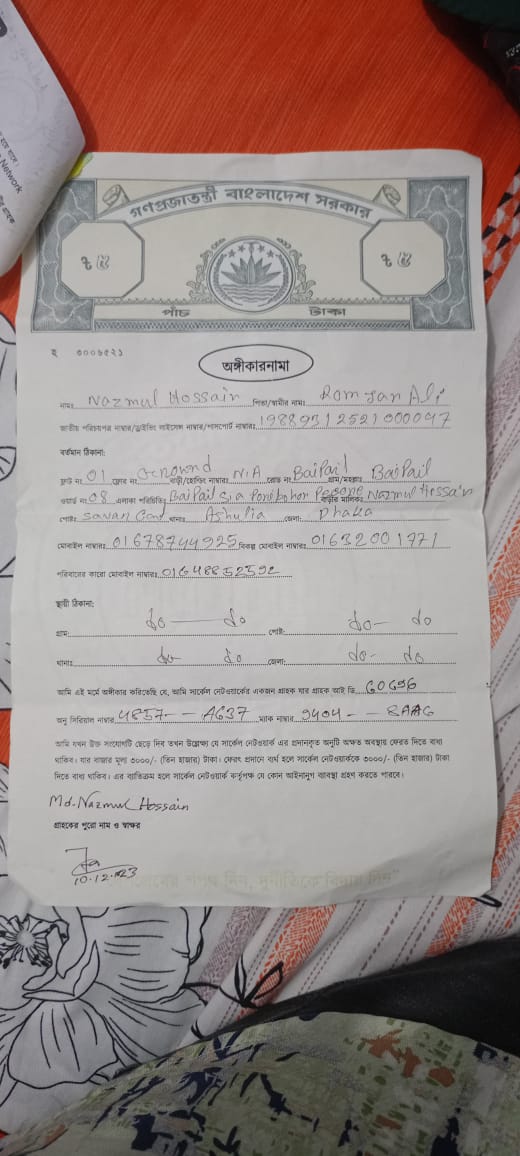 Network
গণপ্রজাতন্ত্রী বাংলাদেশ সরকার
৳ ৫ ৳ ৫
পাঁচ টাকা
অঙ্গীকারনামা
নামঃ Nazmul Hossain পিতা/স্বামীর নামঃ Romjan Ali
জাতীয় পরিচয়পত্র নাম্বার/ড্রাইভিং লাইসেন্স নাম্বার/পাসপোর্ট নাম্বারঃ
বর্তমান ঠিকানা:
ফ্লাট নং 01 ফ্লোর নং Ground বাড়ী/হোল্ডিং নাম্বারঃ N/A রোড নং BaiPail গ্রাম/মহল্লাঃ BaiPail
ওয়ার্ড নং 08 এলাকা পরিচিতিঃ BaiPail বাড়ীর মালিকঃ Nazmul Hossain
পোষ্টঃ Savar Cant থানাঃ Ashulia জেলা: Dhaka
মোবাইল নাম্বারঃ 01678744925 বিকল্প মোবাইল নাম্বারঃ 01632001771
পরিবারের কারো মোবাইল নাম্বারঃ 01648852592
স্থায়ী ঠিকানা:
গ্রাম: do — do পোষ্ট: do — do
থানাঃ do do জেলা: do - do
আমি এই মর্মে অঙ্গীকার করিতেছি যে, আমি সার্কেল নেটওয়ার্কের একজন গ্রাহক যার গ্রাহক আই ডি 60696
অনু সিরিয়াল নাম্বার 4857 - - A637 ম্যাক নাম্বার 9404 - - 8AAG
আমি যখন উক্ত সংযোগটি ছেড়ে দিব তখন উল্লেক্ষ্য যে সার্কেল নেটওয়ার্ক এর প্রদানকৃত অনুটি অক্ষত অবস্থায় ফেরত দিতে বাধ্য
থাকিব। যার বাজার মূল্য ৩০০০/- (তিন হাজার) টাকা। ফেরৎ প্রদানে ব্যর্থ হলে সার্কেল নেটওয়ার্ককে ৩০০০/- (তিন হাজার) টাকা
দিতে বাধ্য থাকিব। এর ব্যতিক্রম হলে সার্কেল নেটওয়ার্ক কর্তৃপক্ষ যে কোন আইনানুগ ব্যবস্থা গ্রহণ করতে পারবে।
Md. Nazmul Hossain
গ্রাহকের পুরো নাম ও স্বাক্ষর
10.12.2023
শপথ নিন, দুর্নীতিকে বিদায় দিন"